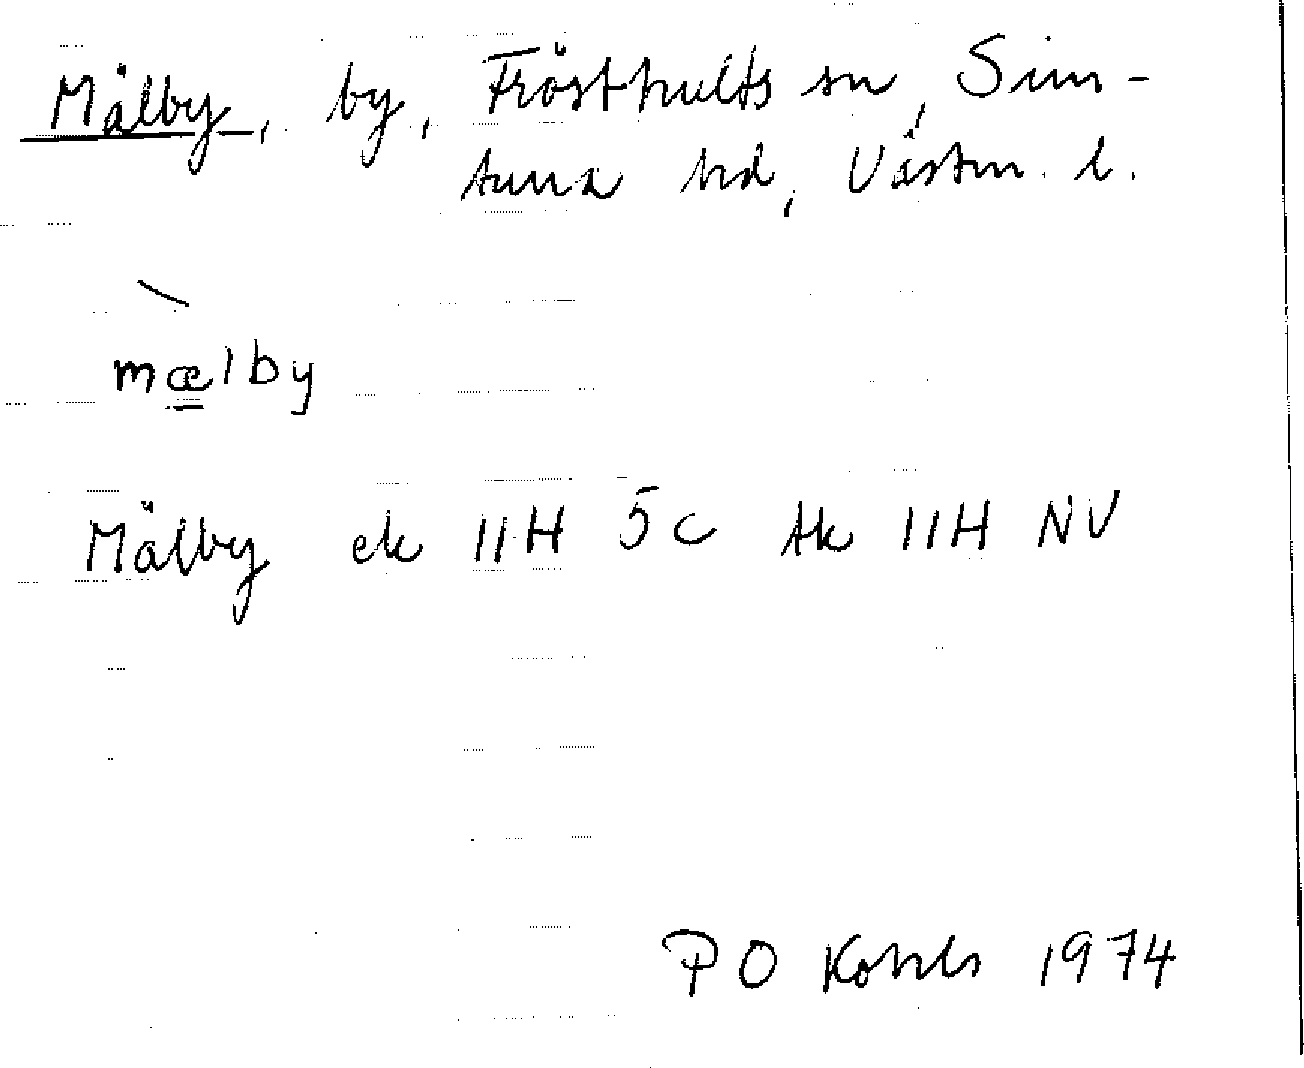 Mälby, by, Frösthults sn, Sim-
tuna hd, Västm. l.
mælby
Mälby ek 11H 5c tk 11H NV
P O 1974